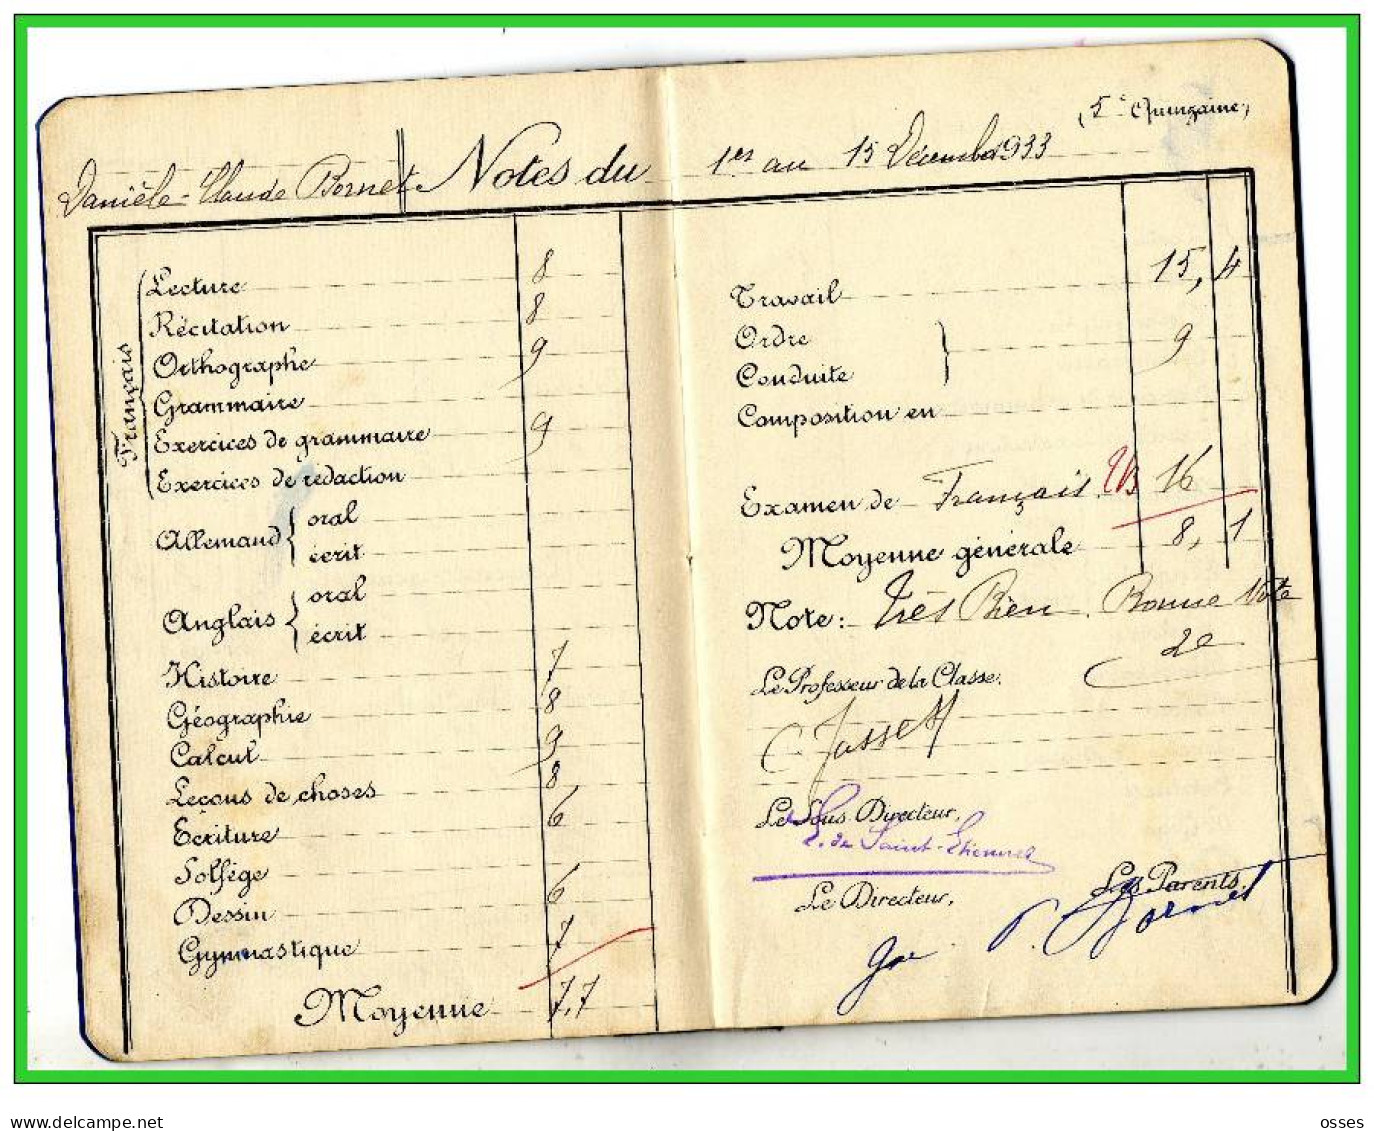 (5e Quinzaine)
Danièle-Claude Bornet Notes du 1er au 15 Décembre 1933
Français
Lecture 8
Récitation 8
Orthographe 9
Grammaire
Exercices de grammaire 9
Exercices de rédaction
Allemand { oral
écrit
Anglais { oral
écrit
Histoire 7
Géographie 8
Calcul 9
Leçons de choses 8
Ecriture 6
Solfège
Dessin 6
Gymnastique 7
Moyenne 7,7
Travail 15,4
Ordre
Conduite } 9
Composition en
Examen de Français. TB 16
Moyenne générale 8,1
Note: Très Bien. Bonne Note
2e
Le Professeur de la Classe.
C. Josset
Le Sous Directeur,
de Saint-Etienne
Le Directeur,
Les Parents.
Bornet
delcampe.net
osses